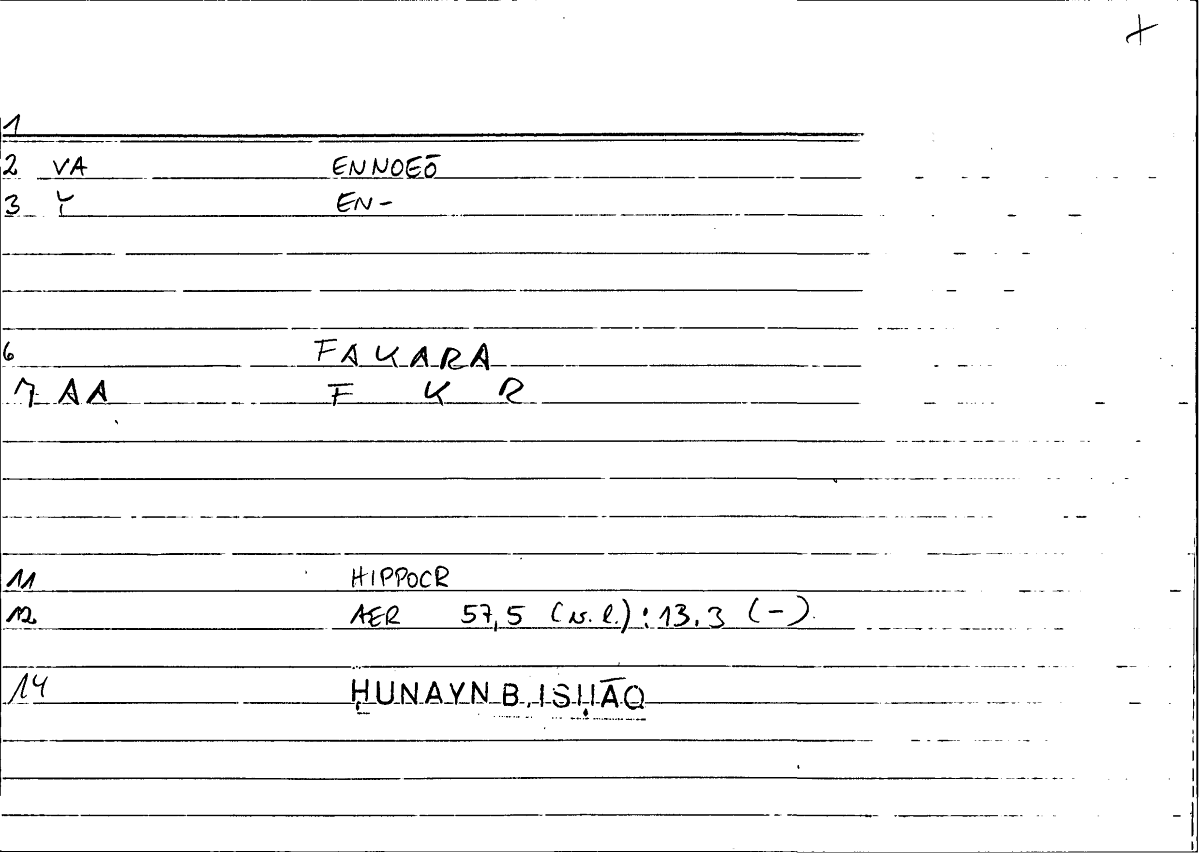 +
1
2 VA ENNOEŌ
3 Y EN-
6 FAKARA
7 AA F K R
11 HIPPOCR
12 AER 57,5 (v.l.):13.3 (-)
14 ḤUNAYN B. ISḤĀQ